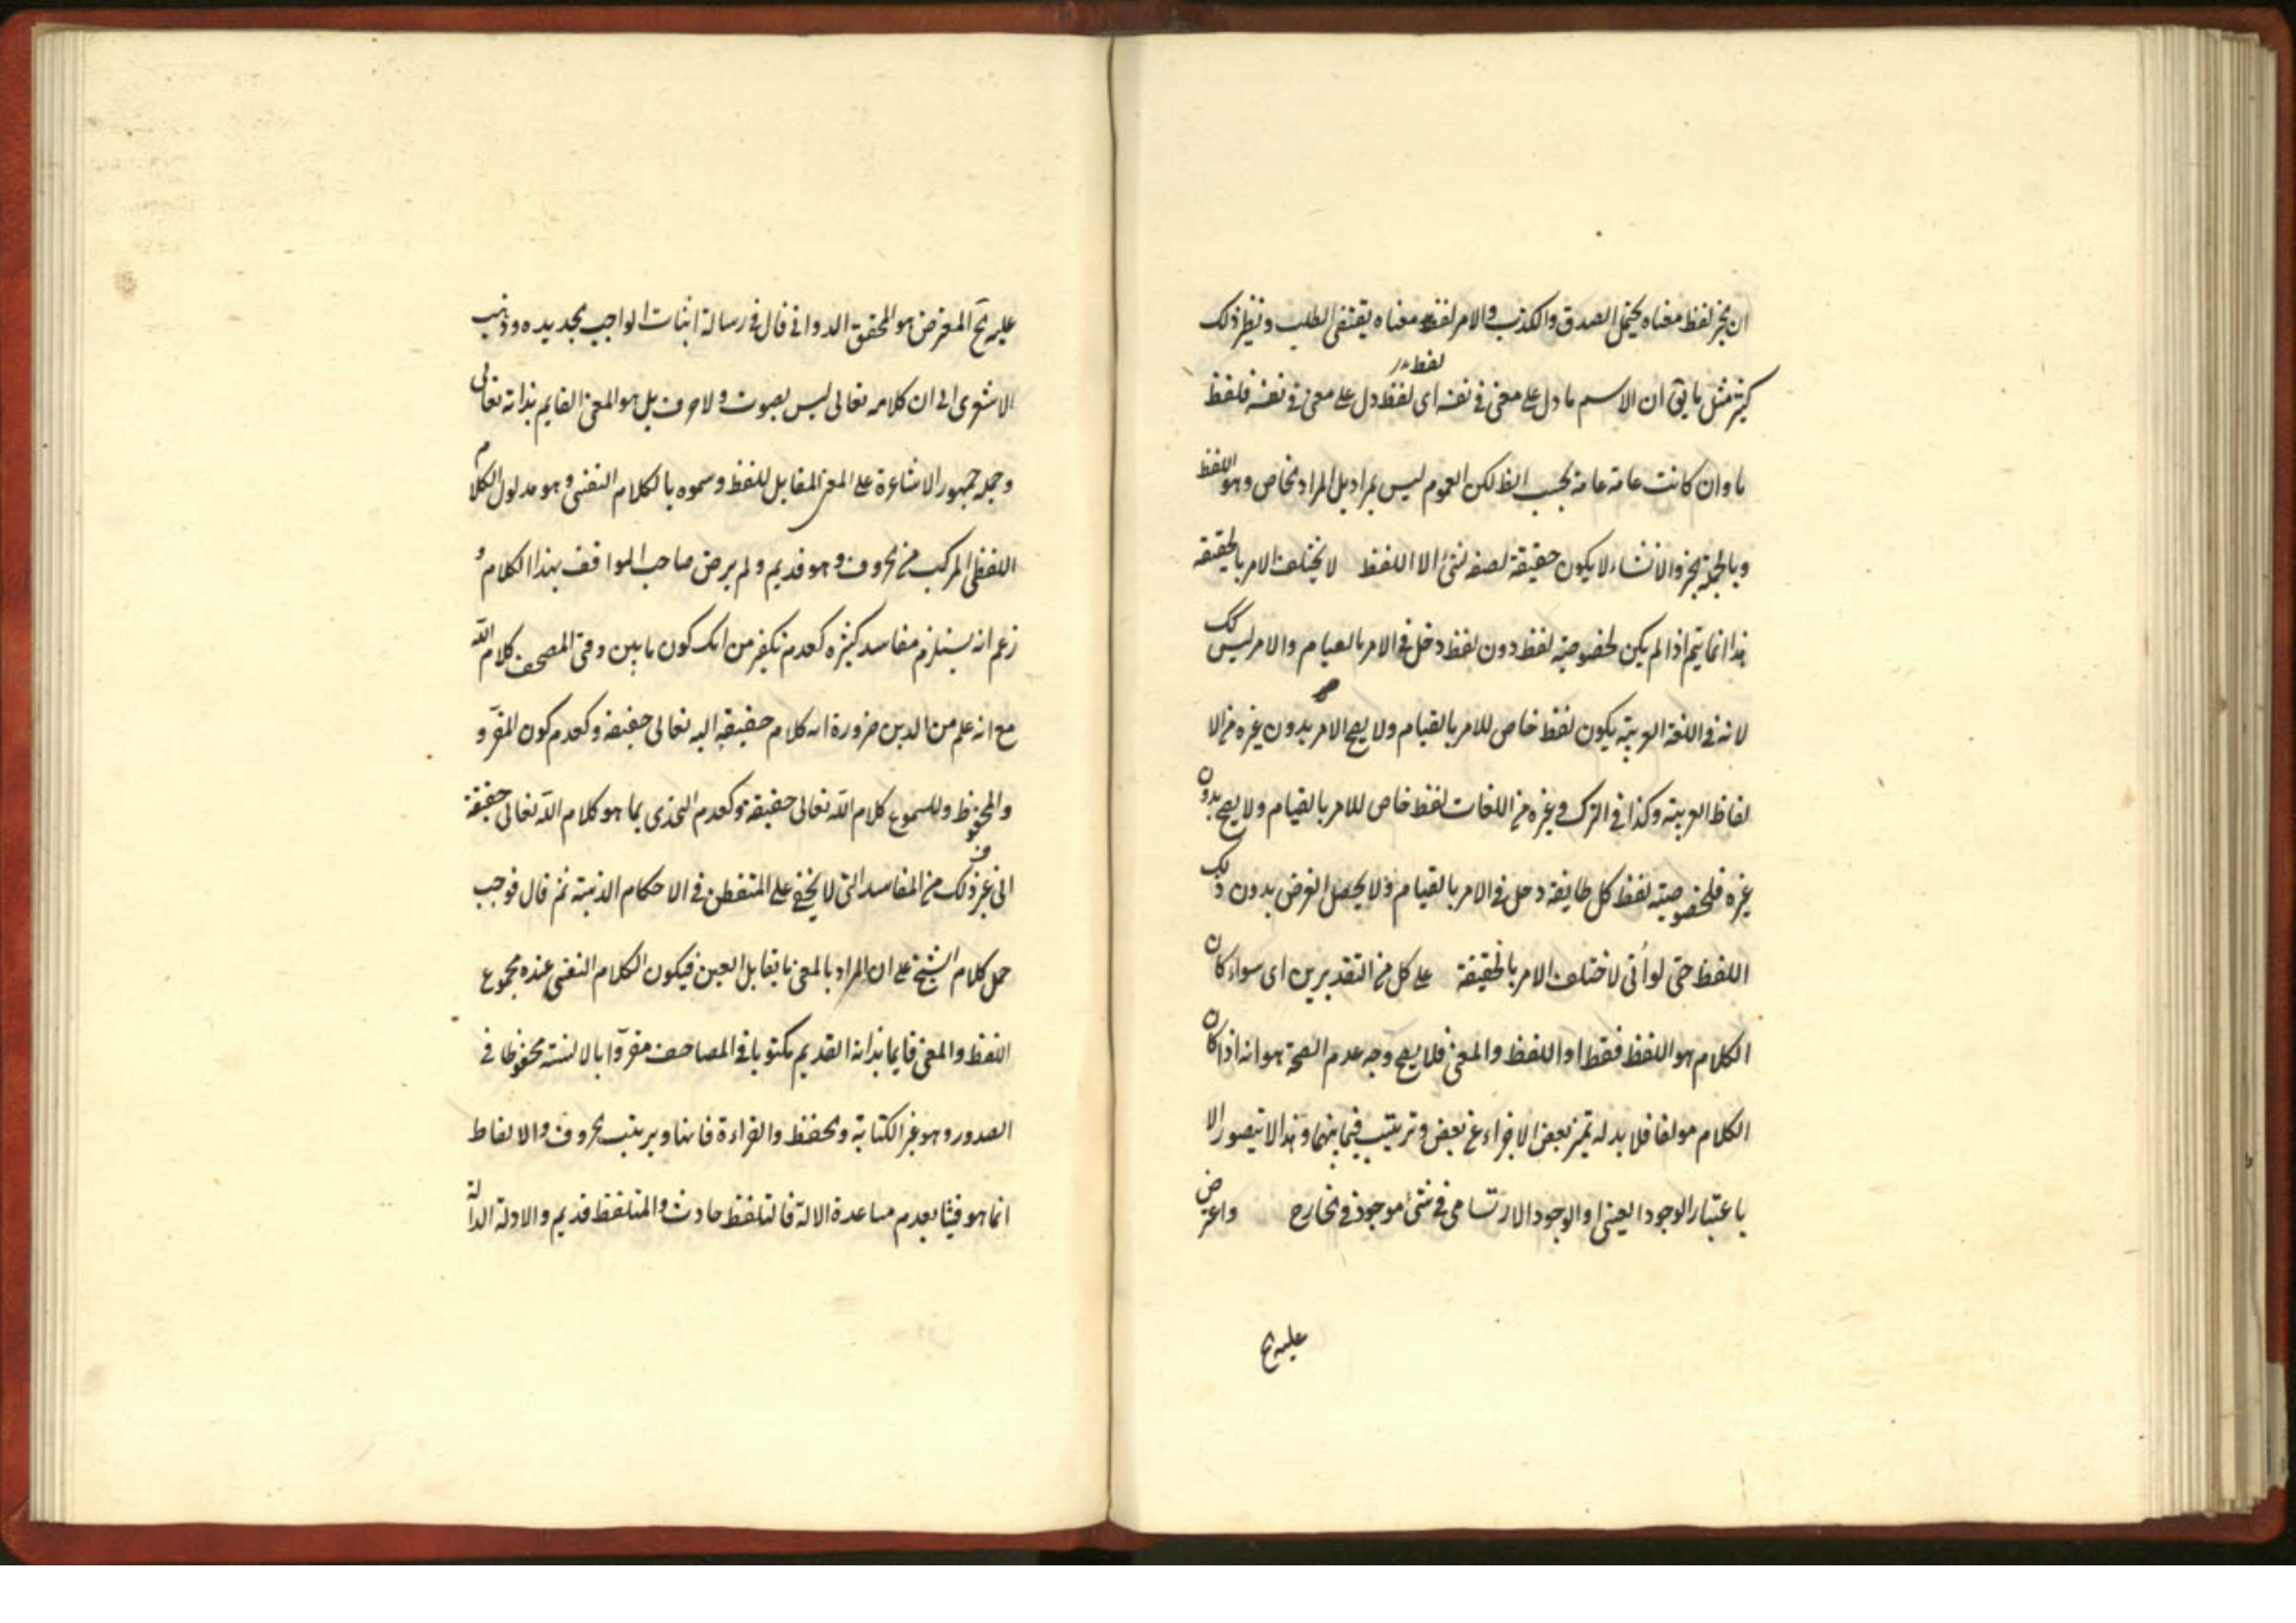 ان الخبر لفظ معناه يحتمل الصدق والكذب والامر لفظ معناه يقتضى الطلب ونظير ذلك
لفظ
كثير مثل ما يق ان الاسم ما دل على معنى فى نفسه اى لفظ دل على معنى فى نفسه فلفظ
ما وان كانت عامة عامة بحسب الظ لكن العموم ليس بمراد بل المراد الخاص وهو اللفظ
وبالجملة الخبر والانشاء لا يكون حقيقة لصفة لشئ الا اللفظ لا يختلف الامر بالحقيقة
هذا انما يتم اذا لم يكن لخصوصية لفظ دون لفظ دخل فى الامر بالقيام والامر ليس كك
لانه فى اللغة العربية يكون لفظ خاص للامر بالقيام ولا يصح الامر بدون غيره من الا
لفاظ العربية وكذا فى الترك وغيره من اللغات لفظ خاص للامر بالقيام ولا يصح بدون
غيره فلخصوصية لفظ كل طايفة دخل فى الامر بالقيام ولا يحصل الغرض بدون ذلك
اللفظ حتى لو اتى لاختلف الامر بالحقيقة على كل من التقديرين اى سواء كان
الكلام هو اللفظ فقط او اللفظ والمعنى فلا يصح وجه عدم الصحة هو انه اذا كان
الكلام مولفا فلا بد له تميز بعض الاجزاء عن بعض وترتيب فيما بينهما وهذا لا يتصور الا
باعتبار الوجود العينى او الوجود الارتسامى فى شئ موجود فى الخارج واعترض
عليه ح
عليه ح المعترض هو المحقق الدوانى قال فى رسالة اثبات الواجب الجديده وذهب
الاشعرى الى ان كلامه تعالى ليس بصوت ولا حرف بل هو المعنى القايم بذاته تعالى
وحمله جمهور الاشاعرة على المعنى المقابل للفظ وسموه بالكلام النفسى وهو مدلول الكلام
اللفظى المركب من الحروف وهو قديم ولم يرض صاحب المواقف بهذا الكلام و
زعم انه يستلزم مفاسد كثيره كعدم تكفير من انكر كون ما بين دفتى المصحف كلام الله
مع انه علم من الدين ضرورة انه كلام حقيقة اليه تعالى حقيقة وكعدم كون المقرو
والمحفوظ والمسموع كلام الله تعالى حقيقة وكعدم التحدى بما هو كلام الله تعالى حقيقة
الى غير ذلك من المفاسد التى لا يخفى على المتفطن فى الاحكام الدينية ثم قال فوجب
حمل كلام الشيخ على ان المراد بالمعنى ما يقابل العين فيكون الكلام النفسى عنده مجموع
اللفظ والمعنى قايما بذاته القديم مكتوبا فى المصاحف مقروا بالالسنة محفوظا فى
الصدور وهو غير الكتابة والحفظ والقراءة فانها وترتيب الحروف والالفاظ
انما هو فينا لعدم مساعدة الالة فالتلفظ حادث والمتلفظ قديم والادلة الدالة